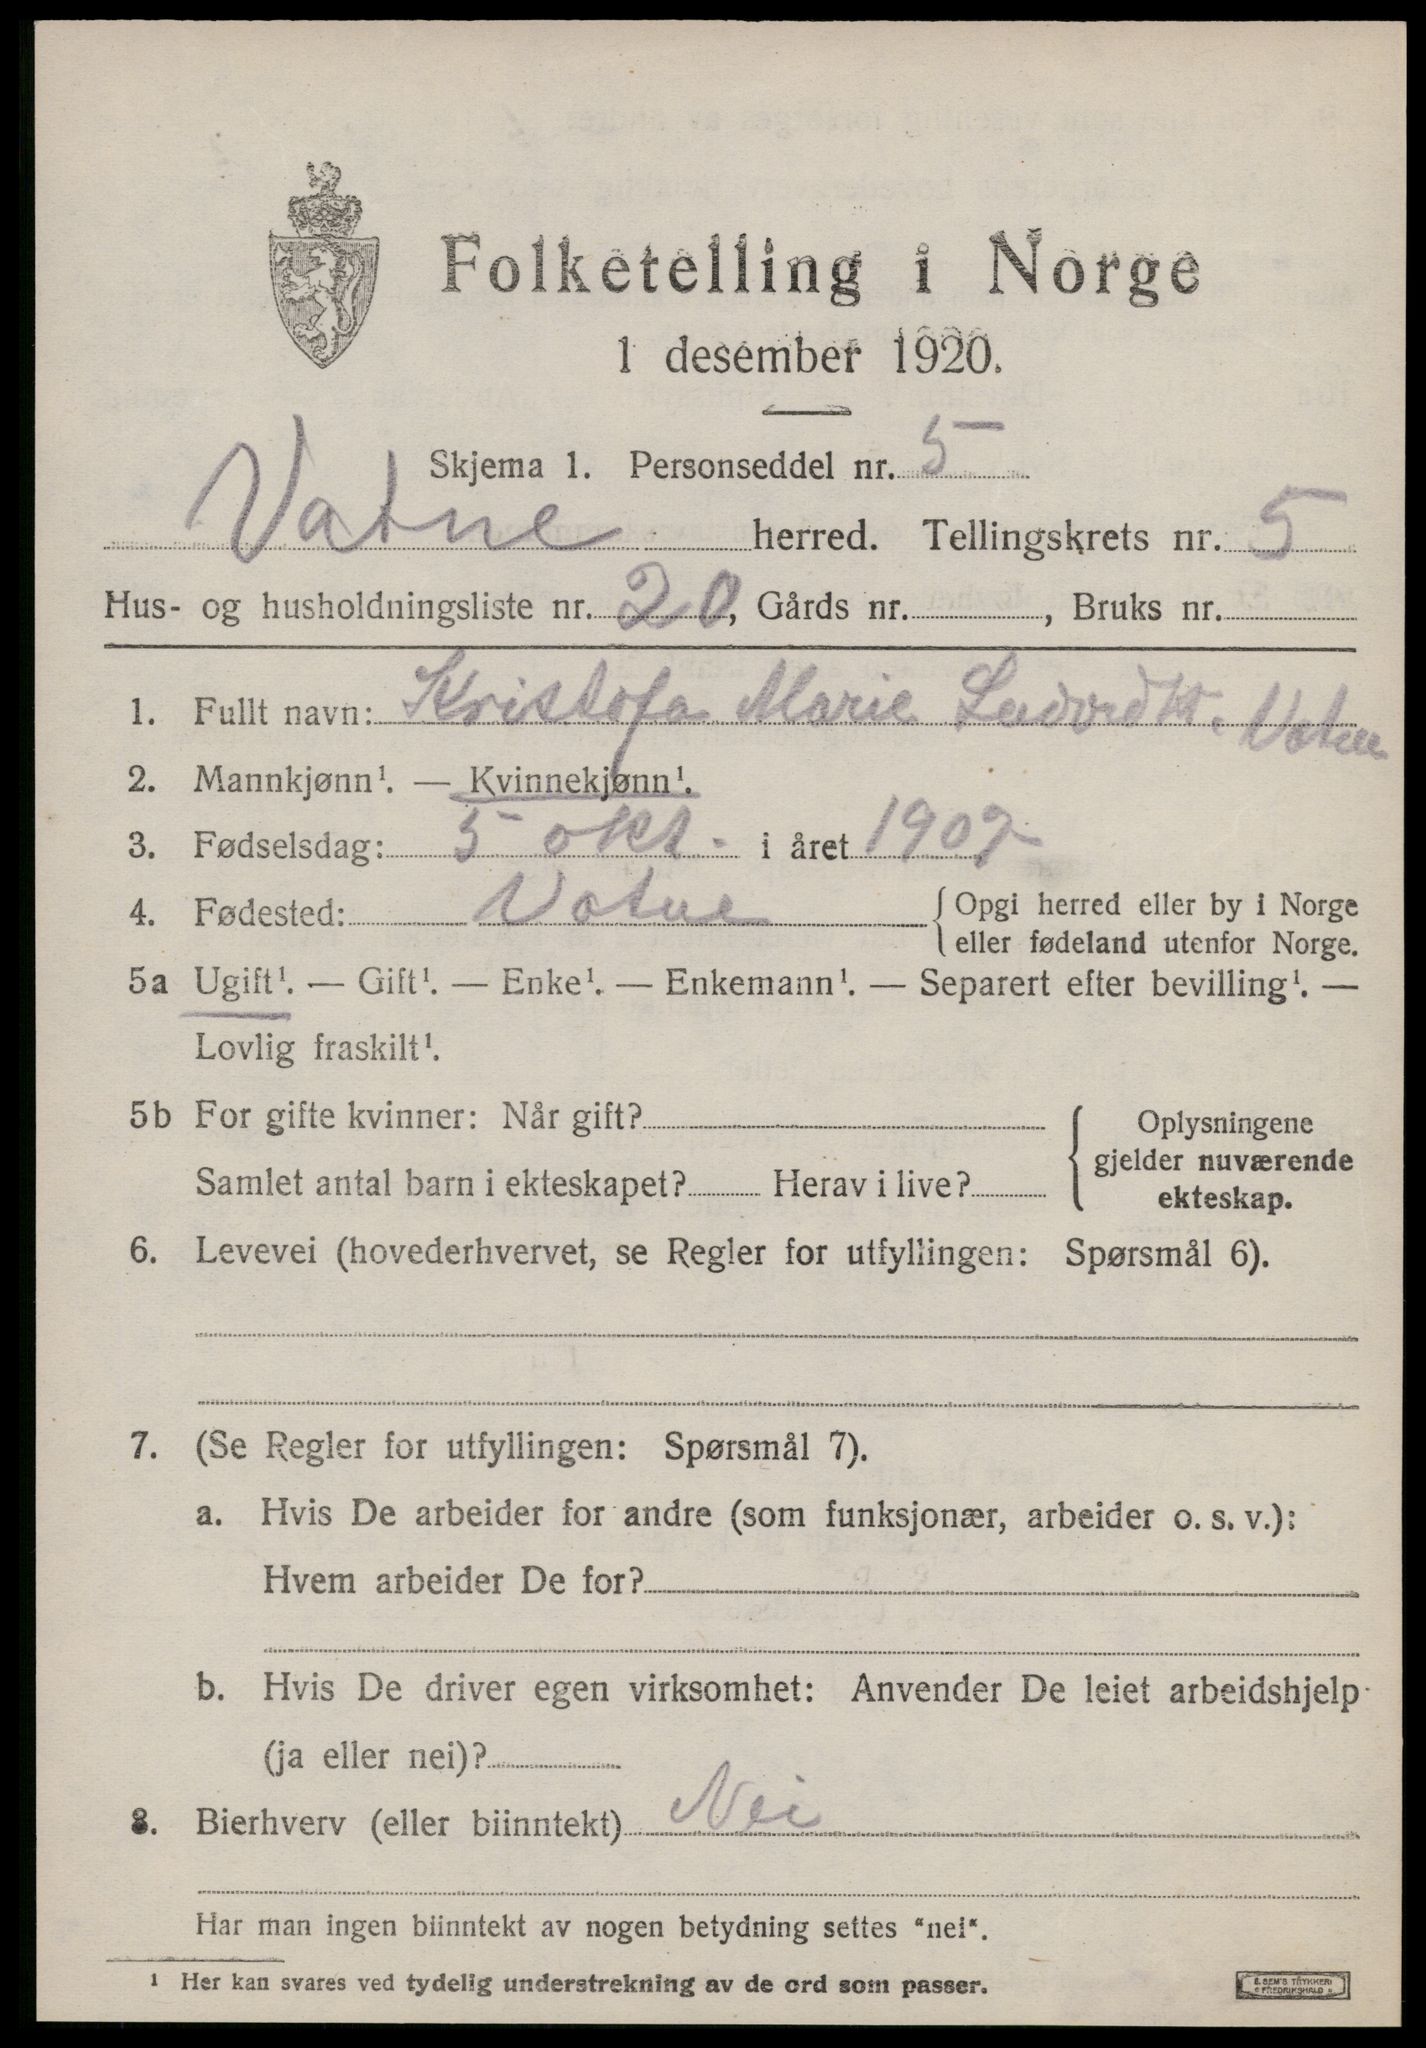 Folketelling i Norge
1 desember 1920.
Skjema 1. Personseddel nr. 5
Vatne herred. Tellingskrets nr. 5
Hus- og husholdningsliste nr. 20, Gårds nr. , Bruks nr.
1. Fullt navn: Kristofa Marie Vatne
2. Mannkjønn¹. — Kvinnekjønn¹.
3. Fødselsdag: 5 okt. i året 1907
4. Fødested: Vatne { Opgi herred eller by i Norge
eller fødeland utenfor Norge.
5a Ugift¹. — Gift¹. — Enke¹. — Enkemann¹. — Separert efter bevilling¹. —
Lovlig fraskilt¹.
5b For gifte kvinner: Når gift? { Oplysningene
gjelder nuværende
ekteskap.
Samlet antal barn i ekteskapet? Herav i live?
6. Levevei (hovederhvervet, se Regler for utfyllingen: Spørsmål 6).
7. (Se Regler for utfyllingen: Spørsmål 7).
a. Hvis De arbeider for andre (som funksjonær, arbeider o. s. v.):
Hvem arbeider De for?
b. Hvis De driver egen virksomhet: Anvender De leiet arbeidshjelp
(ja eller nei)?
8. Bierhverv (eller biinntekt) Nei
Har man ingen biinntekt av nogen betydning settes "nei".
¹ Her kan svares ved tydelig understrekning av de ord som passer.
E. SEM'S TRYKKERI
FREDRIKSHALD